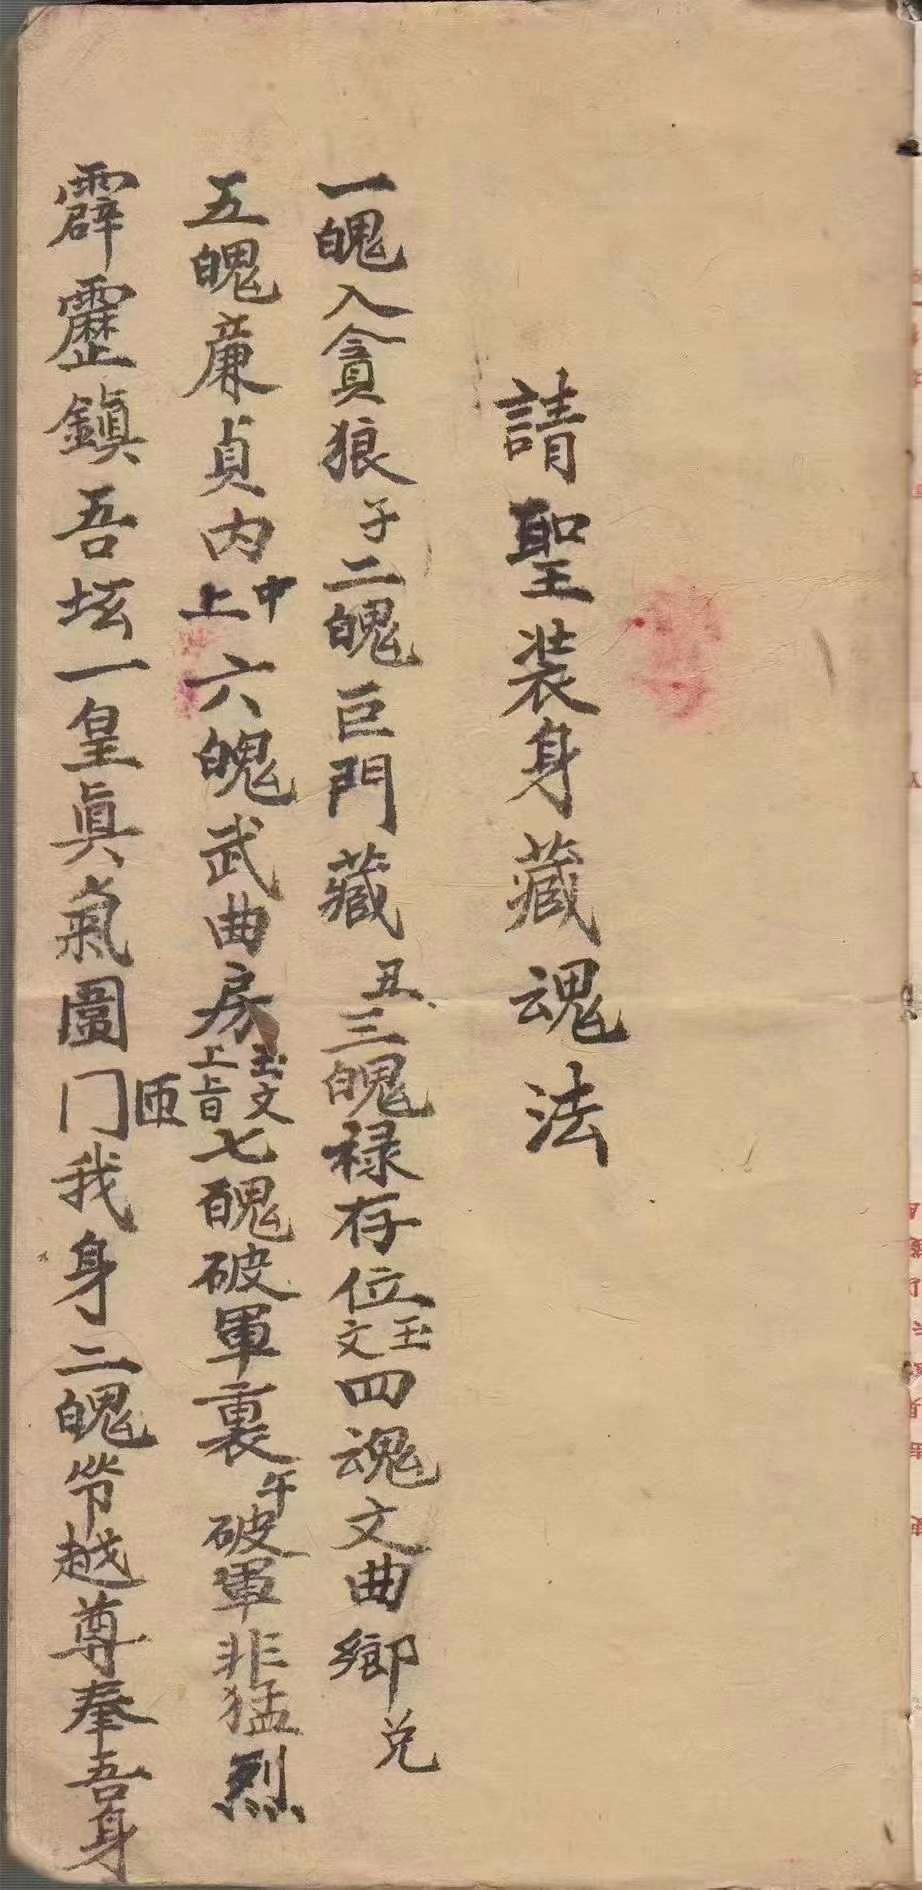 請聖装身藏魂法
一魄入貪狼子二魄巨門藏丑三魄禄存位玉文四魂文曲鄉兑
五魄廉貞内中上六魄武曲房玉文上旨七魄破軍裏午破軍非猛烈
霹靂鎮吾坛一皇眞氣圖門匝我身二魄爷越尊奉吾身